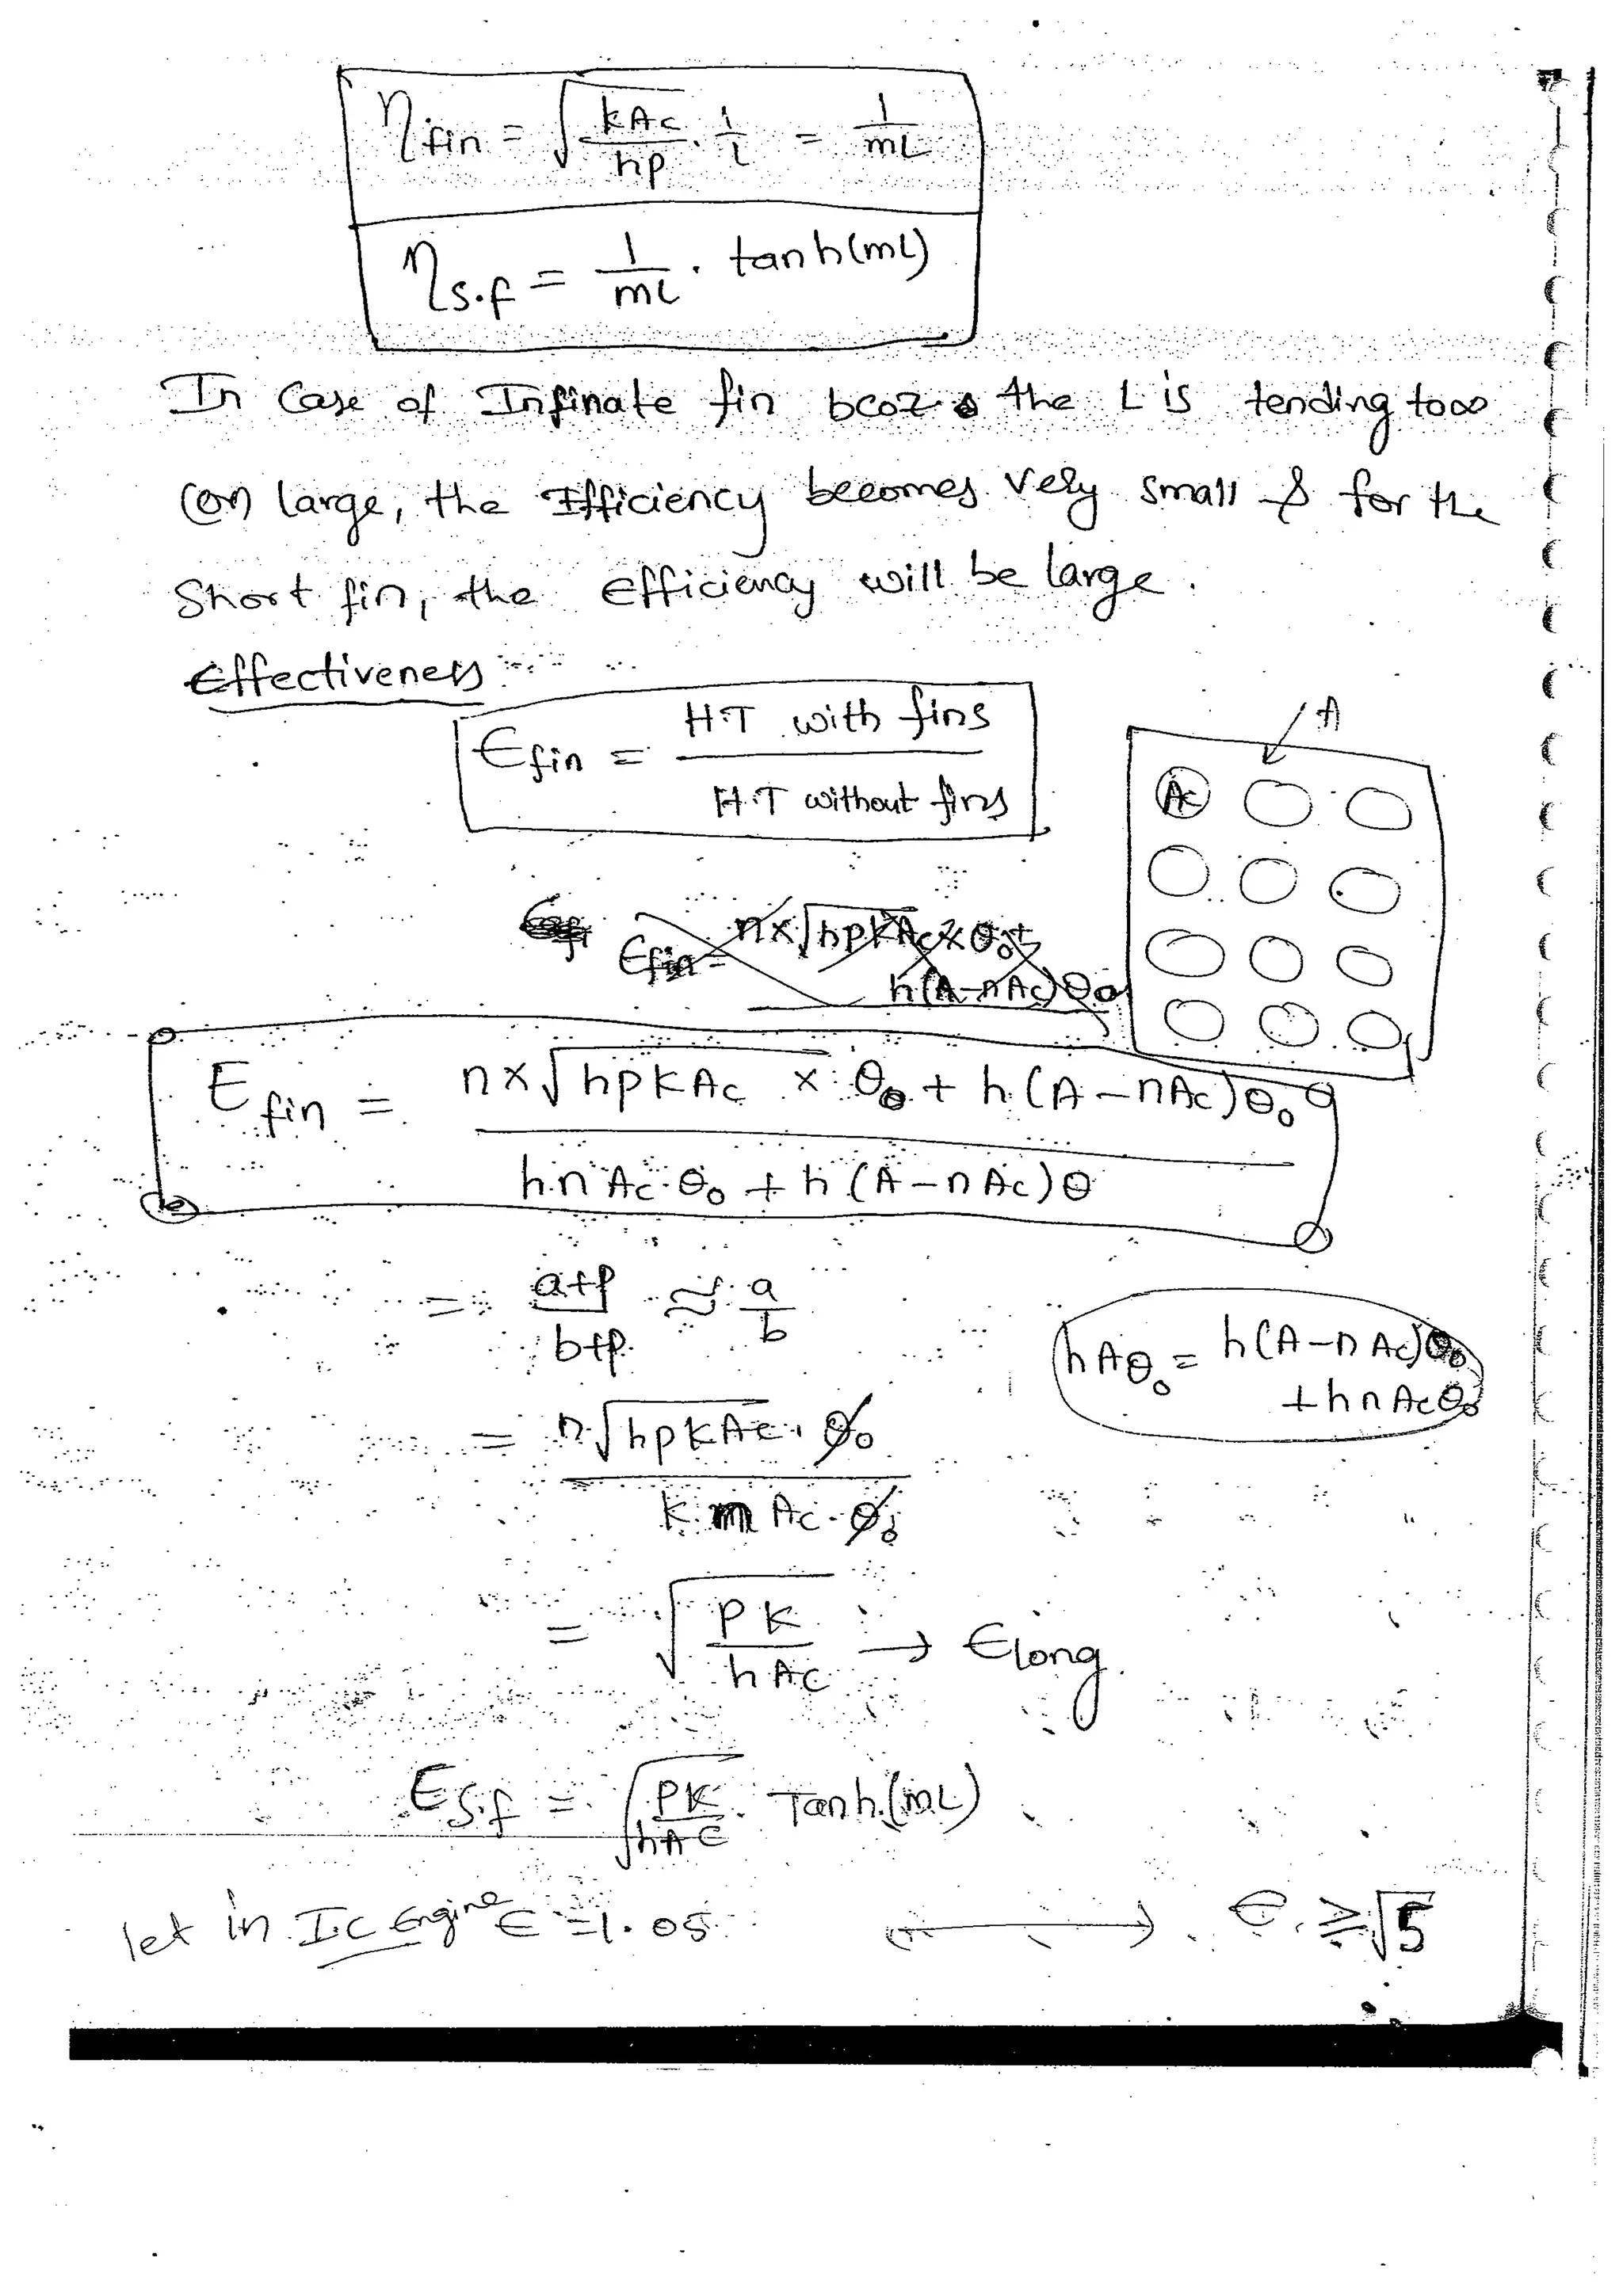 η fin = √(kAc/hp) · 1/L = 1/mL
η s.f = 1/mL · tanh(mL)
In Case of Infinate fin bcoz the L is tending to ∞
(or) large, the Efficiency becomes very small & for the
Short fin, the efficiency will be large.
Effectiveness
ϵ fin = H.T with fins / H.T without fins
A
Ac
ϵ fin = n×√hpkAc × θ₀ +
h(A-nAc)θ₀
E fin = n×√hpkAc × θ₀ + h(A-nAc)θ₀ / h.n Ac.θ₀ + h(A-nAc)θ
= a+p / b+p ≈ a/b
hAθ₀ = h(A-nAc)θ₀
+hnAcθ₀
= n√hpkAc . θ₀
/ k n Ac.θ₀
= √(PK/hAc) → ϵ long
E s.f = √(PK/hAc) . Tanh.(mL)
let in I.C Engine ϵ = 1.05 ⟷ ϵ ≥ √5